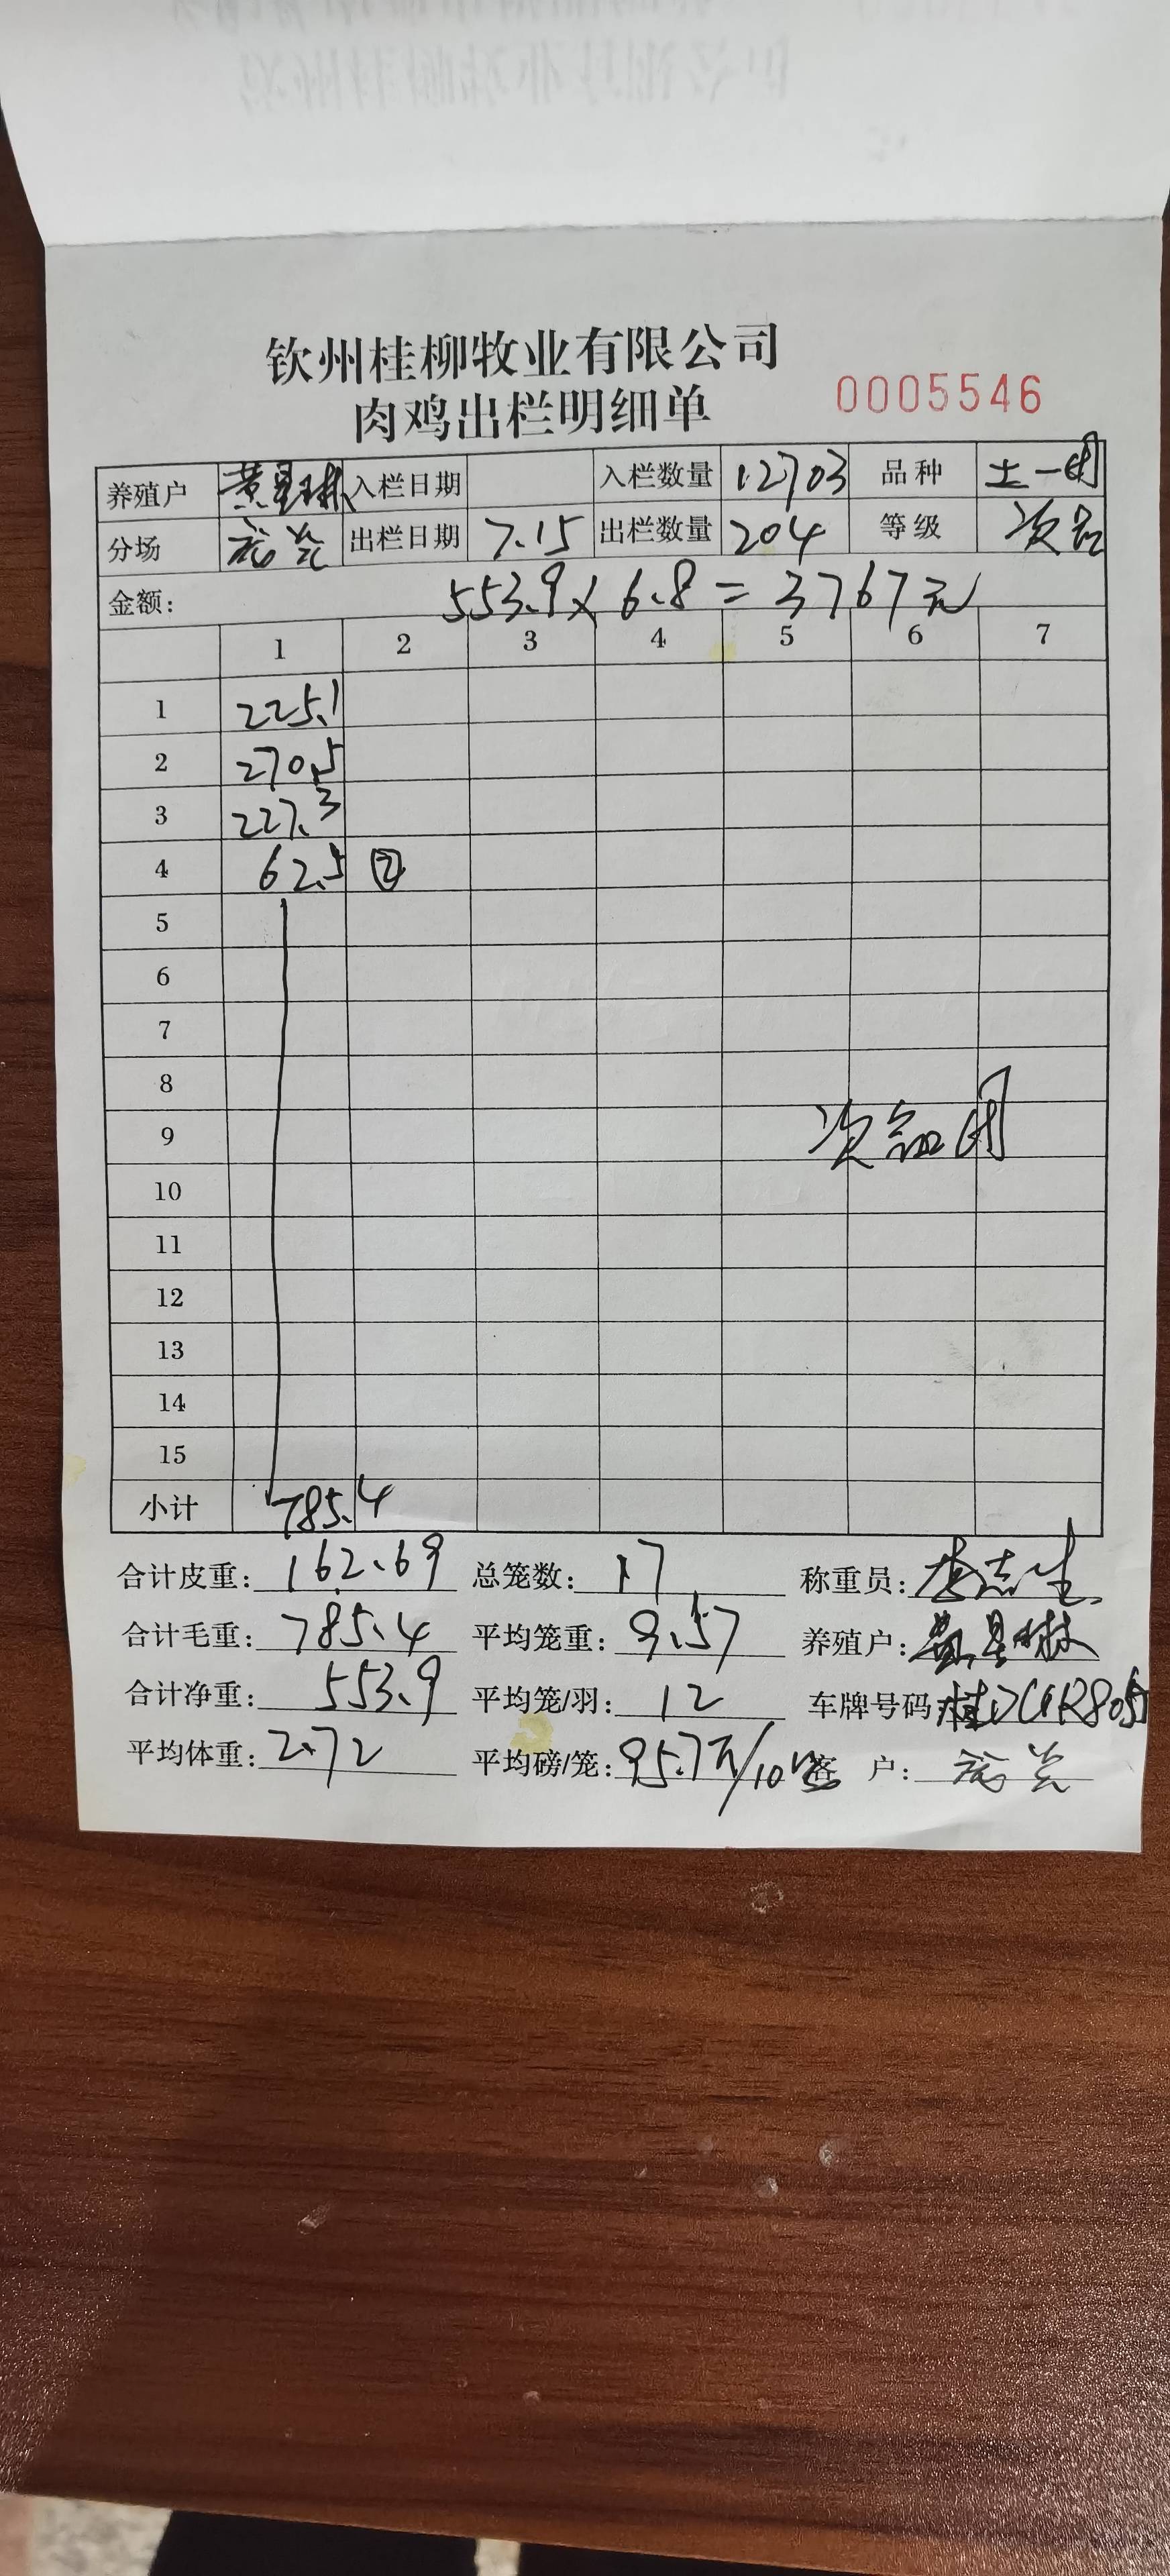 钦州桂柳牧业有限公司
肉鸡出栏明细单
0005546
养殖户 黄 入栏日期 入栏数量 12703 品种 土一
分场 出栏日期 7.15 出栏数量 204 等级 次品
金额: 553.9×6.8=3767元
1 2 3 4 5 6 7
1 225.1
2 270.5
3 227.3
4 62.5 ②
5
6
7
8
9 次品
10
11
12
13
14
15
小计 785.4
合计皮重: 162.69 总笼数: 17 称重员: 李志生
合计毛重: 785.4 平均笼重: 9.57 养殖户: 黄
合计净重: 553.9 平均笼/羽: 12 车牌号码: 桂
平均体重: 2.72 平均磅/笼: 95.7斤/10笼 客 户: